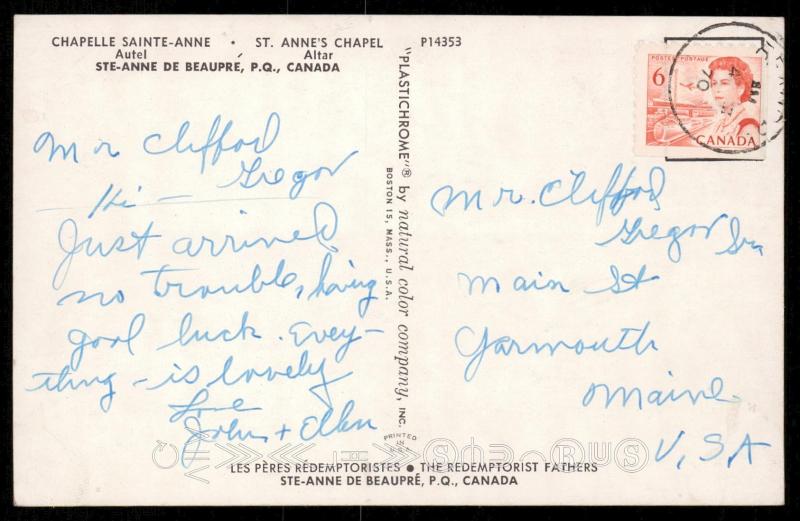 CHAPELLE SAINTE-ANNE • ST. ANNE'S CHAPEL
Autel Altar
STE-ANNE DE BEAUPRÉ, P.Q., CANADA
P14353
Mr Clifford
Gregor
Hi -
Just arrived
no trouble, having
good luck. Evey-
thing - is lovely
Love
John + Ellen
"PLASTICHROME"® by natural color company, INC.
BOSTON 15, MASS., U.S.A.
PRINTED
IN
U.S.A.
POSTES POSTAGE
6
CANADA
70
Mr. Clifford
Gregor Sr
Main St
Yarmouth
Maine
U.S.A
LES PÈRES RÉDEMPTORISTES • THE REDEMPTORIST FATHERS
STE-ANNE DE BEAUPRÉ, P.Q., CANADA